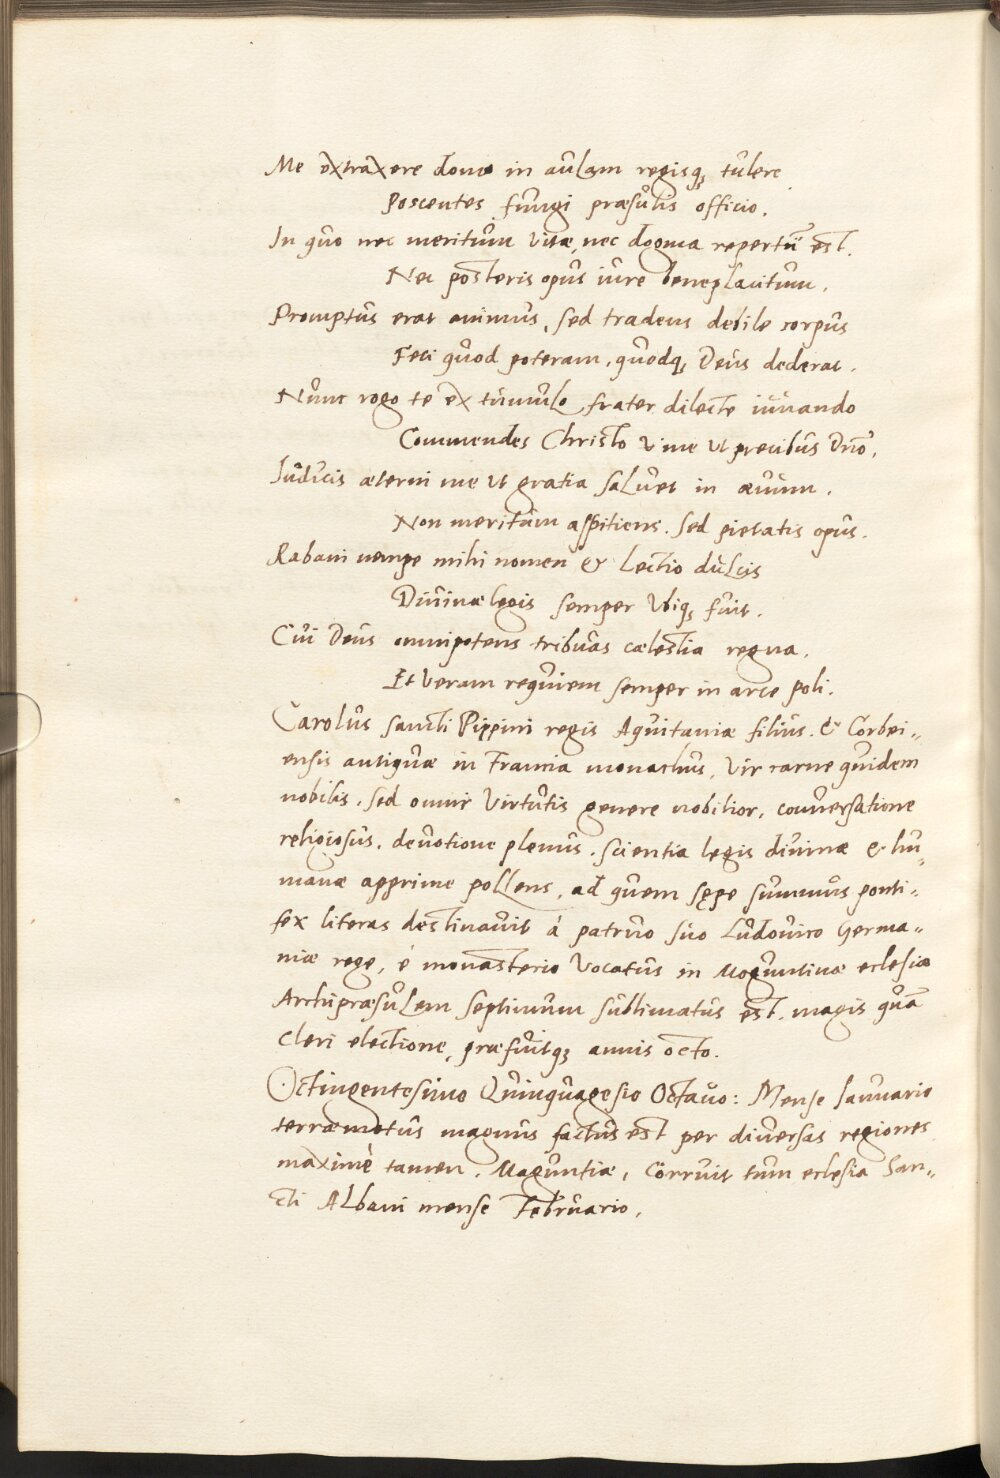 Me extraxere domo in aulam regisq; tulere
Poscentes fungi præsulis officio.
In quo nec meritum vitæ, nec dogma repertũ est.
Nec posteris opus iure beneplacitum.
Promptus erat animus, sed tradens debile corpus
Feci quod poteram, quodq; Deus dederat.
Nunc rogo te ex tumulo frater dilecte iuuando
Commendes Christo vi me ut precibus Dño,
Iudicis æterni me ut gratia saluet in æuum.
Non meritum aspitiens. sed pietatis opus.
Rabani nempe mihi nomen & lectio dulcis
Diuinæ legis semper vbiq; fuit.
Cui Deus omnipotens tribuas cælestia regna,
Et veram requiem semper in arce poli.
Carolus sancti Pippini regis Aquitaniæ filius. & Corbei„
ensis antiquæ in Francia monachus, vir carne quidem
nobilis. sed omni virtutis genere nobilior, conuersatione
religiosus, deuotione plenus. scientia legis diuinæ & hu„
manæ apprime pollens, ad quem sępe summus ponti„
fex literas destinauit á patruo suo Ludouico Germa„
niæ rege, é monasterio vocatus in Moguntinæ eclesiæ
Archipræsulem septimum sublimatus est, magis quã
cleri electione, præfuitq; annis octo.
Octingentesimo Quinquagesio Octauo: Mense Ianuario
terræmotus magnus factus est per diuersas regiones
maximè tamen. Maguntiæ, Corruit tum eclesia San„
cti Albani mense Februario.